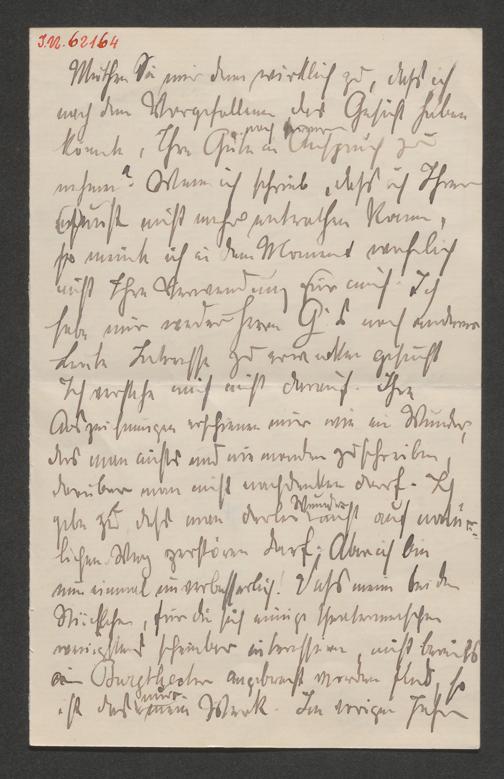 I.N. 62164
Muthen Sie mir denn wirklich zu, daß ich
nach dem Vorgefallenen das Gesicht haben
könnte, Ihre Güte noch in Anspruch zu
nehmen? Wenn ich schrieb, daß ich Ihrer
nicht mehr entrathen kann,
so meinte ich in dem Moment wahrlich
nicht Ihre Verwendung für mich. Ich
habe mir weder Herrn G. noch anderer
Leute Interesse zu erwecken gesucht
Ich verstehe mich nicht darauf. Ihre
Auszeichnungen erschienen mir wie ein Wunder,
das man nichts und niemandem zuschreiben,
darüber man nicht nachdenken darf. Ich
gebe zu daß man derlei Wunder nicht auf natür-
lichen Weg zerstören darf; Aber ich bin
nun einmal unverbesserlich! Daß meine beiden
Stückchen, für die sich einige Theatermenschen
wenigstens scheinbar interessiren, nicht bereits
ein Burgtheater angebracht worden sind, so
ist das nur mein Werk. Im vorigen Jahre